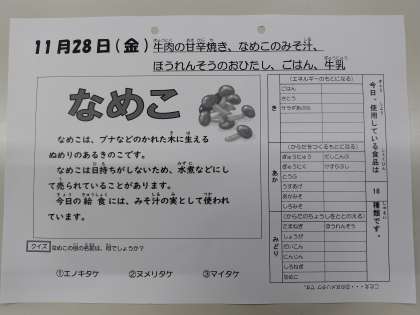 11月28日(金) 牛肉の甘辛焼き、なめこのみそ汁、
ほうれんそうのおひたし、ごはん、牛乳
なめこ
なめこは、ブナなどのかれた木に生える
ぬめりのあるきのこです。
なめこは日持ちがしないため、水煮などにし
て売られていることがあります。
今日の給食には、みそ汁の実として使われ
ています。
クイズ なめこの別の名前は、何でしょうか?
①エノキタケ ②ヌメリタケ ③マイタケ
今日、使用している食品は
18
種類です。
き
(エネルギーのもとになる)
ごはん
さとう
サラダあぶら
あか
(からだをつくるもとになる)
ぎゅうにゅう
ぎゅうにく
とうふ
うすあげ
あかみそ
しろみそ
だしこんぶ
けずりぶし
みどり
(からだのちょうしをととのえる)
たまねぎ ほうれんそう
しょうが
だいこん
にんじん
しろねぎ
なめこ